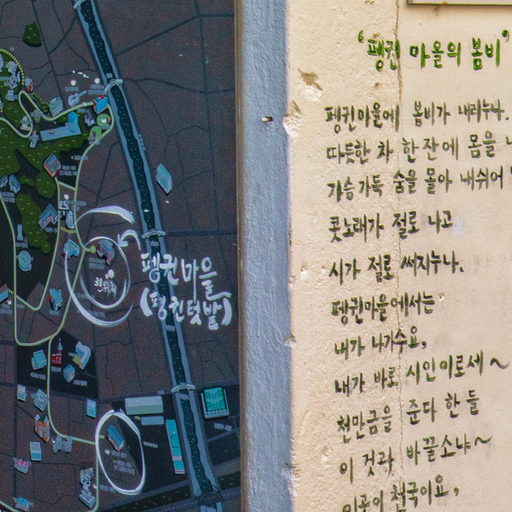 현위치
펭귄마을
(펭귄텃밭)
'펭귄 마을의 봄비'
펭귄마을에 봄비가 내리누나.
따듯한 차 한 잔에 몸을
가슴 가득 숨을 몰아 내쉬어
콧노래가 절로 나고
시가 절로 써지누나.
펭귄마을에서는
내가 나가수요,
내가 바로 시인이로세~
천만금을 준다 한들
이 것과 바꿀소냐~
이곳이 천국이요,